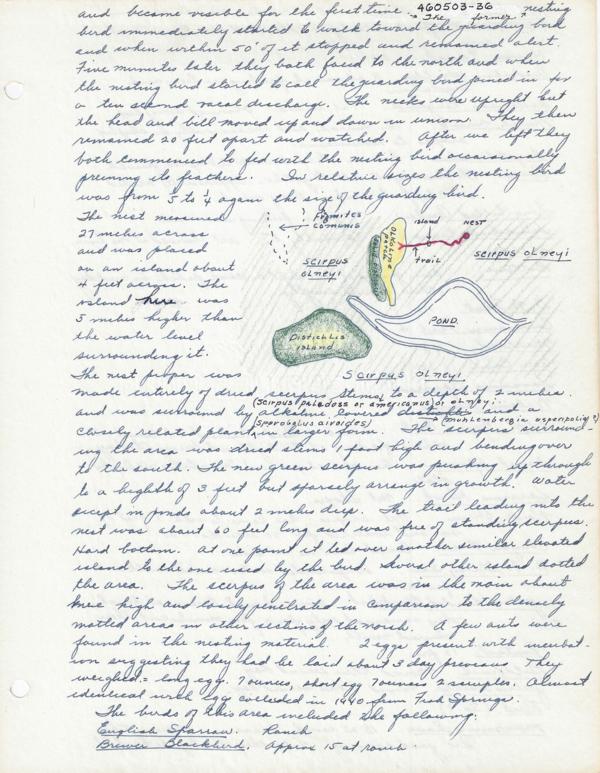 460503-36
and become visible for the first time. The former nesting
bird immediately started to walk toward the guarding bird
and when within 50' of it stopped and remained alert.
Five minutes later they both faced to the north and when
the nesting bird started to call the guarding bird joined in for
a ten second vocal discharge. The necks were upright but
the head and bill moved up and down in unison. They then
remained 20 feet apart and watched. After we left they
both commenced to fed with the nesting bird occasionally
preening its feathers. In relative sizes the nesting bird
was from 5 to 1/4 again the size of the guarding bird.
The nest measured
27 inches across
and was placed
on an island about
4 feet across. The
island here was
5 inches higher than
the water level
surrounding it.
The nest proper was
Frgmites
Comunis
Scirpus
olneyi
ALKALINE
PATCH
island
trail
NEST
Scirpus olneyi
POND
Distichlis
island
Scirpus olneyi
made entirely of dried scirpus stems to a depth of 2 inches.
(Scirpus paledosa or americanus) or olneyi.
and was surround by alkaline covered distichlis and a
(Muhlenbergia asperpolia?)
closely related plant in larger form. The scirpus surround-
Sporobolus airoides)
ing the area was dried stems 1 foot high and bending over
to the south. The new green scirpus was pushing up through
to a highth of 3 feet but sparsely arrange in growth. Water
except in ponds about 2 inches deep. The trail leading into the
nest was about 60 feet long and was free of standing scirpus.
Hard bottom. At one point it led over another similar elevated
island to the one used by the bird. Several other island dotted
the area. The scirpus of the area was in the main about
knee high and easily penetrated in comparison to the densely
matted areas in other sections of the marsh. A few ants were
found in the nesting material. 2 eggs present with incubat-
ion suggesting they had be laid about 3 day previous. They
weighed = long egg. 7 ounces, short egg 7 ounces 2 scruples. Almost
identical with egg collected in 1940 from Fish Springs.
The birds of this area included the following:
English Sparrow. Ranch
Brewer Blackbird. Approx 15 at ranch.